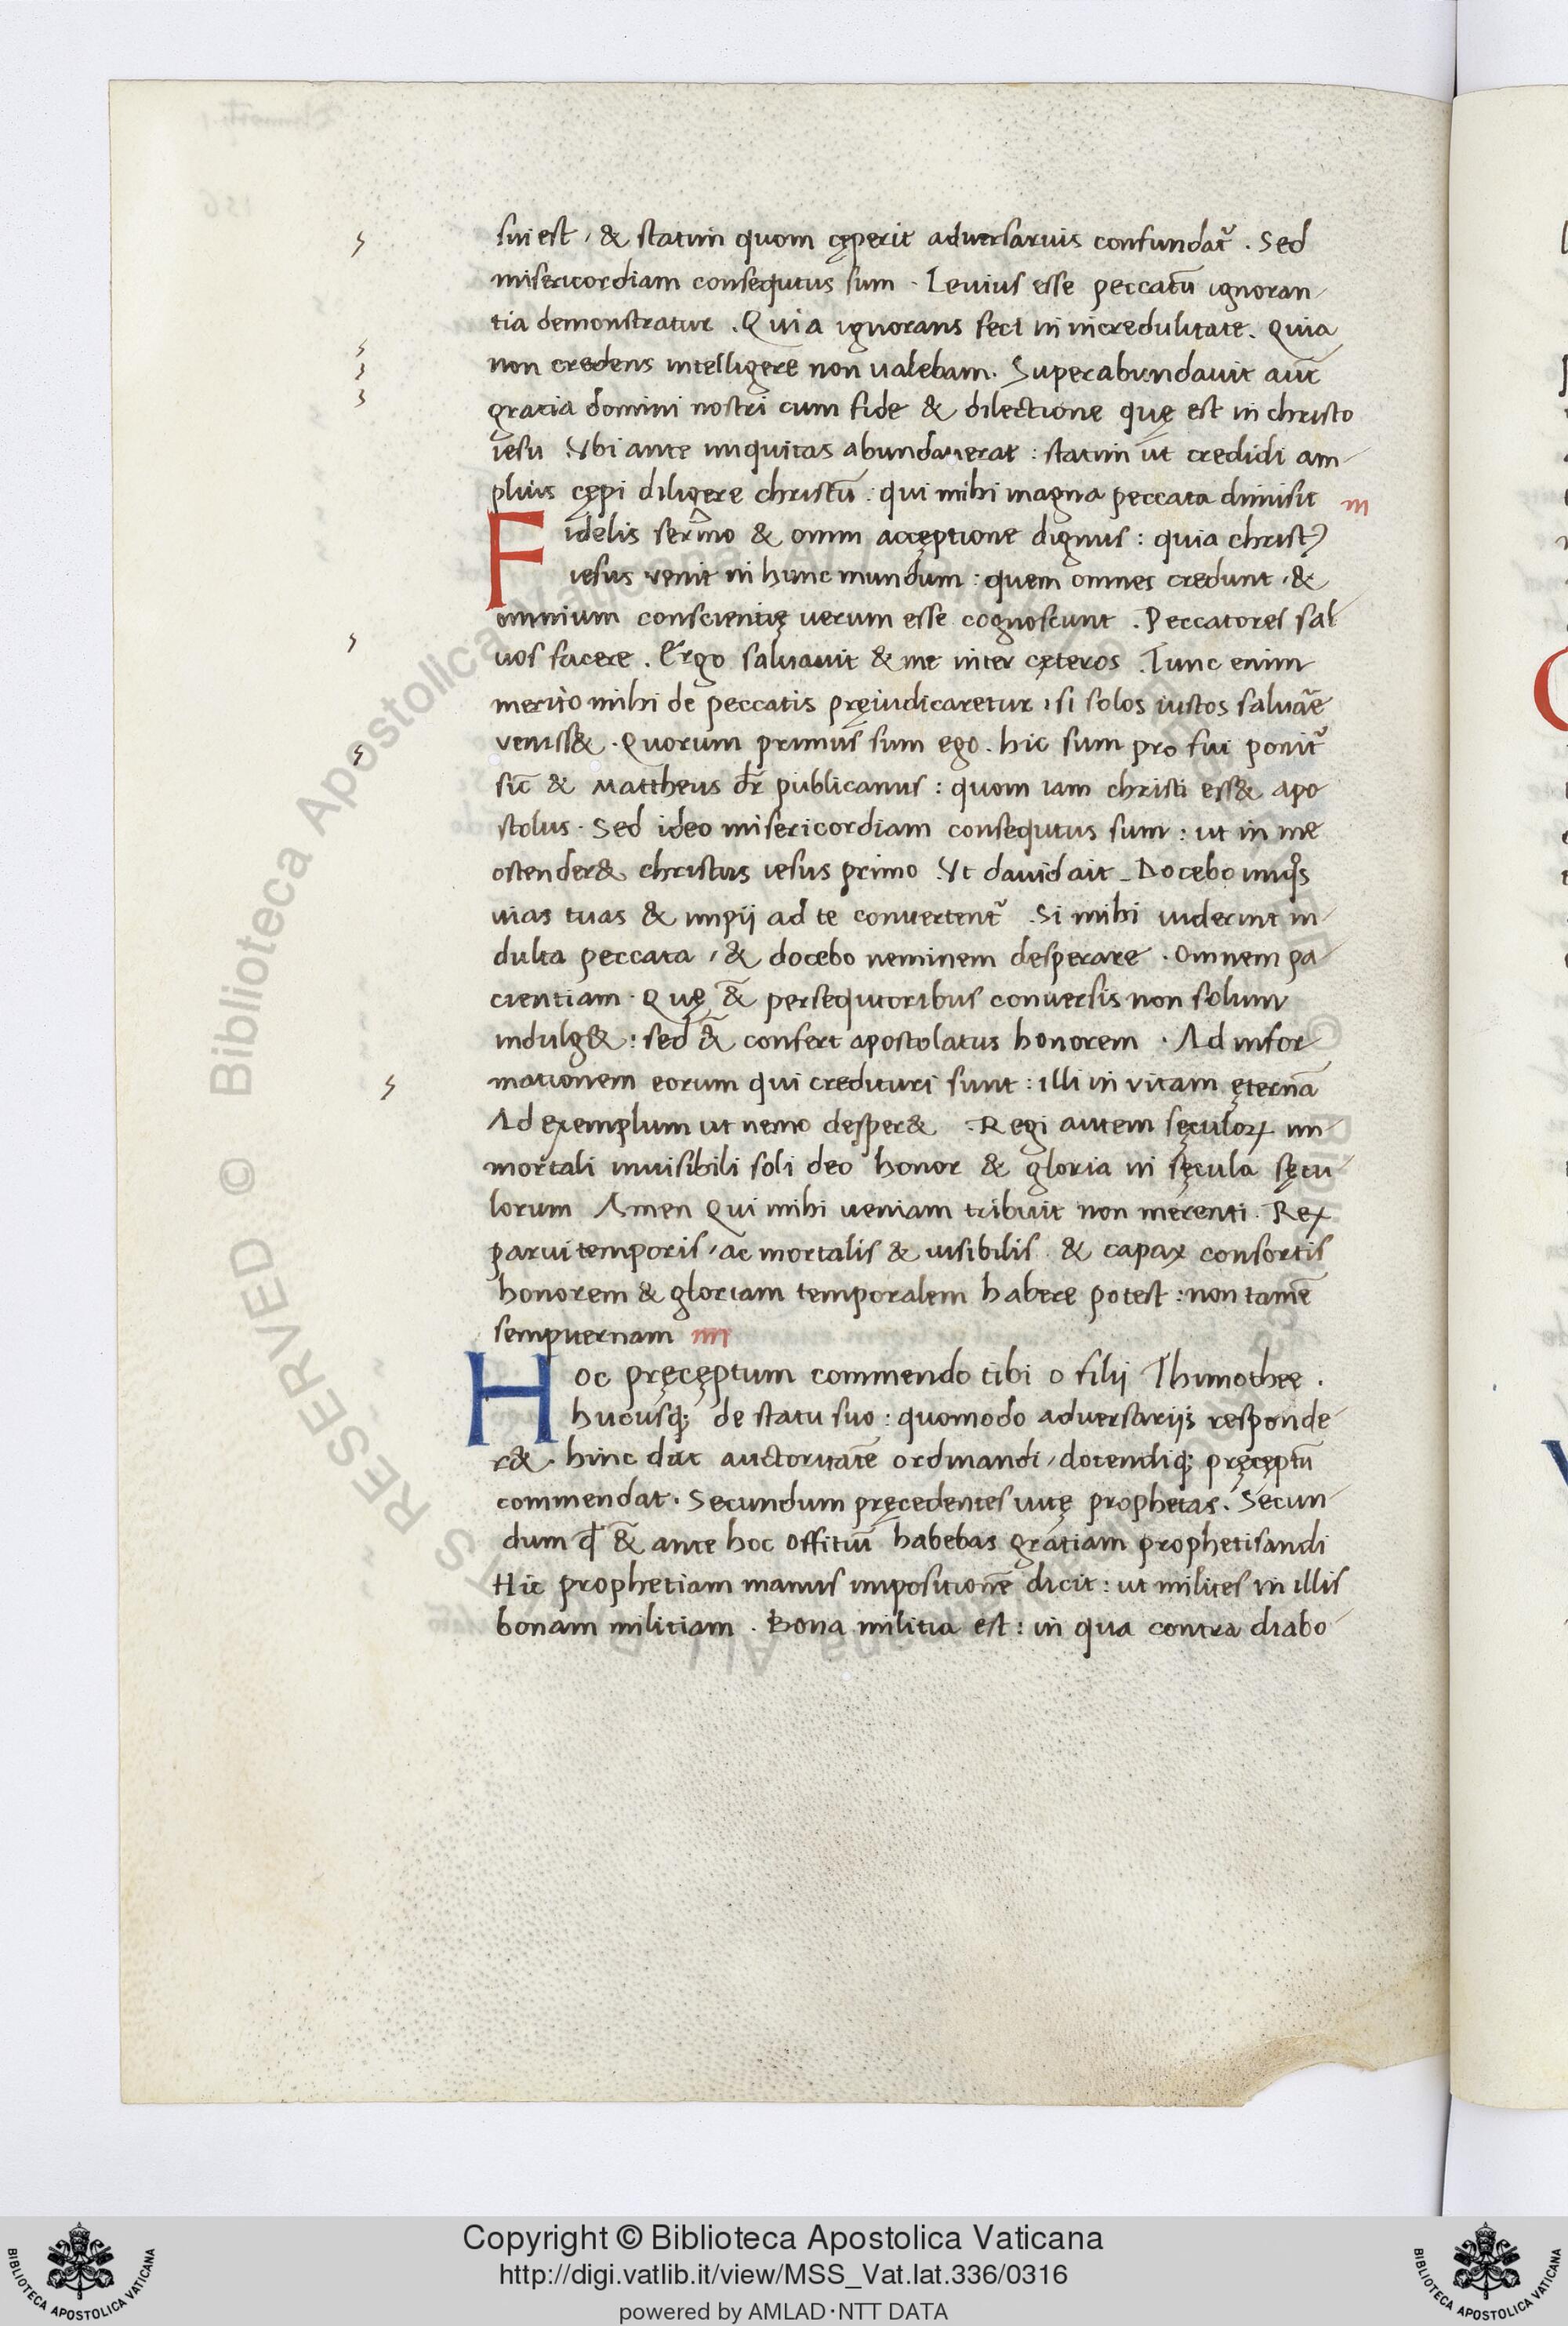 sui est, & statim quom cęperit adversarius confundat᷑. Sed
misericordiam consequtus sum. Levius esse peccatū ignoran-
tia demonstratur. Quia ignorans feci in incredulitate. Quia
non credens intelligere non valebam. Superabundavit aut̄
gratia domini nostri cum fide & dilectione quę est in christo
iesu Ubi ante iniquitas abundaverat: statim ut credidi am-
plius cępi diligere christū: qui mihi magna peccata dimisit III
Fidelis sermo & omni accęptione dignus: quia christꝰ
iesus venit in hunc mundum: quem omnes credunt, &
omnium conscientię verum esse cognoscunt. Peccatores sal-
vos facere. Ergo salvavit & me inter cęteros. Tunc enim
merito mihi de peccatis pręiudicaretur, si solos iustos salvār̄e
veniss&. Quorum primus sum ego. hic sum pro fui ponit᷑
sic̄ & Mattheus dr̄ publicanus: quom iam christi ess& apo
stolus. Sed ideo misericordiam consequtus sum: ut in me
ostender& christus iesus primo Ut david ait. Docebo iniq̊s
vias tuas & impij ad te convertent᷑. Si mihi viderint in-
dulta peccata, & docebo neminem desperare. Omnem pa-
cientiam. Quę &̄ persequtoribus conversis non solum
indulg&: sed &̄ confert apostolatus honorem. Ad infor-
mationem eorum qui credituri sunt: illi in vitam ęternā
Ad exemplum ut nemo desper&. Regi autem sęculoꝝ im-
mortali invisibili soli deo honor & gloria in sęcula sęcu-
lorum Amen Qui mihi veniam tribuit non merenti. Rex
parvi temporis, ac mortalis & visibilis & capax consortis
honorem & gloriam temporalem habere potest: non tamē
sempiternam IIII
Hoc pręcęptum commendo tibi o filij Thimothee.
hucusq; de statu suo: quomodo adversarijs responde-
r&. hinc dat auctoritatē ordinandi, docendiq; pręcęptū
commendat. Secundum pręcedentes in te prophetas. Secun-
dum qd̄ &̄ ante hoc offitiū habebas gratiam prophetisandi
Hic prophetiam manus impositionē dicit: ut milites in illis
bonam militiam. Bona militia est: in qua contra diabo-
Copyright © Biblioteca Apostolica Vaticana
http://digi.vatlib.it/view/MSS_Vat.lat.336/0316
powered by AMLAD·NTT DATA